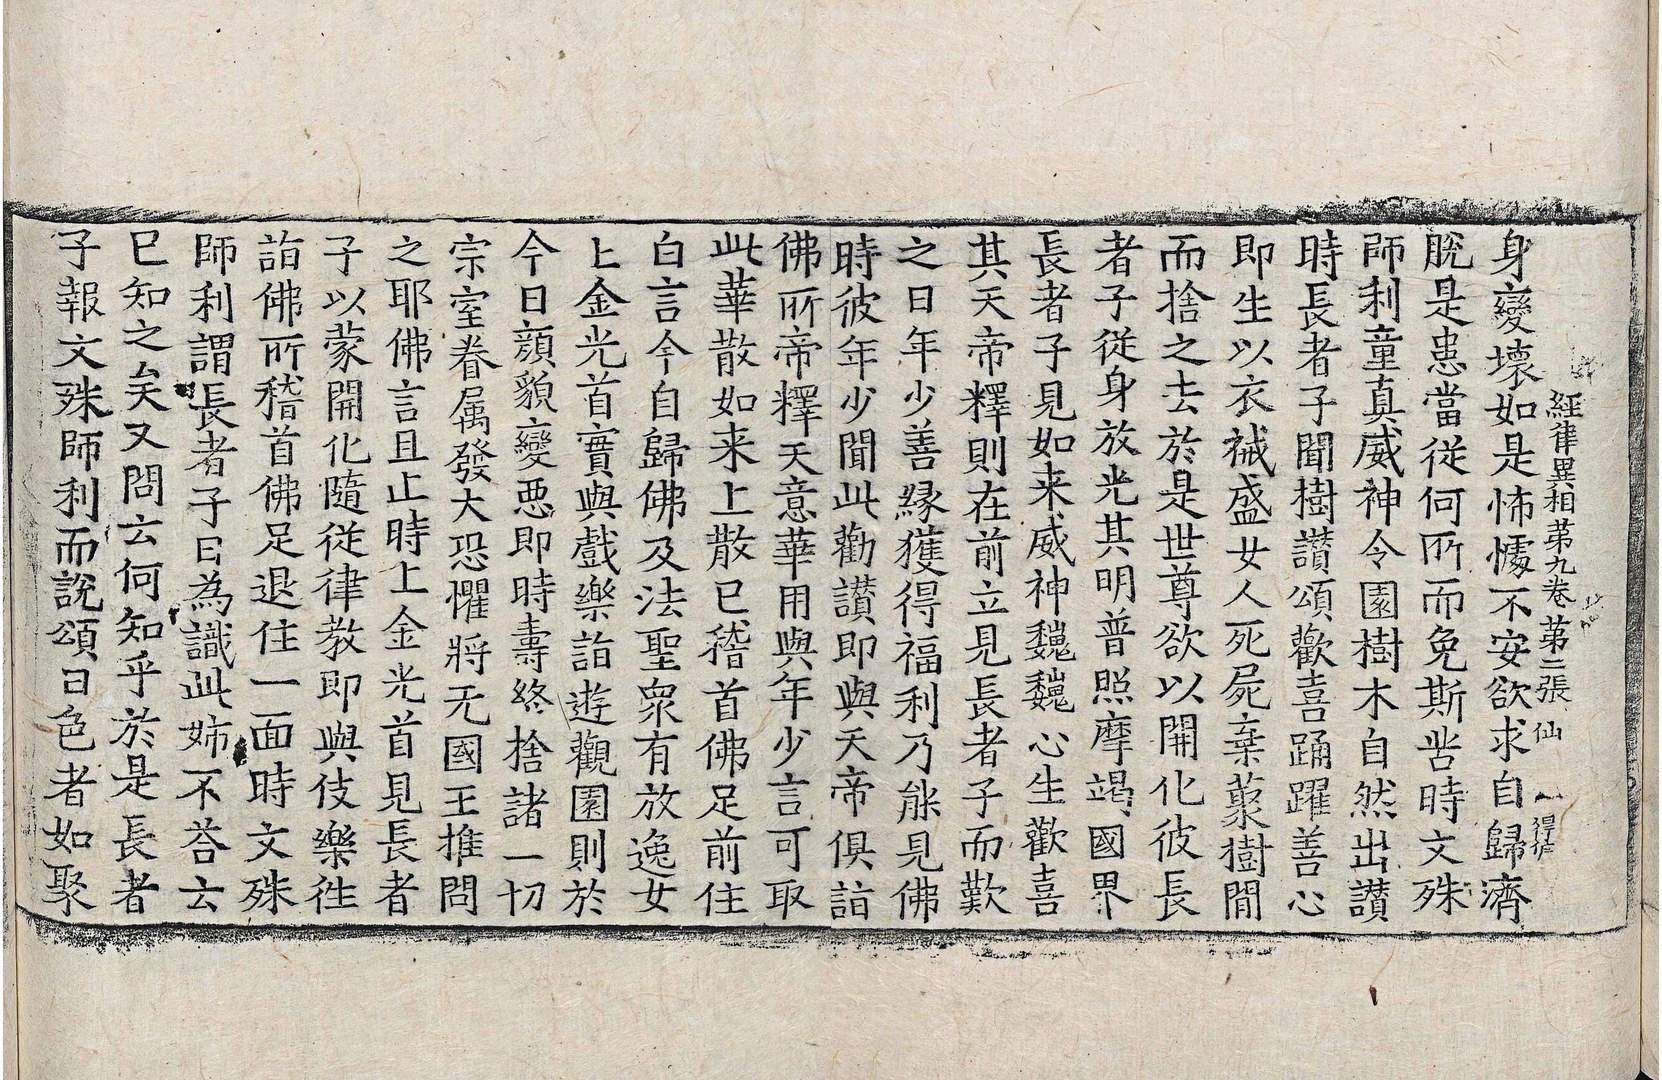 經律異相第九卷 第二張 仙
身變壞如是怖懅不安欲求自歸濟
脫是患當從何所而免斯苦時文殊
師利童真威神令園樹木自然出讃
時長者子聞樹讃頌歡喜踊躍善心
即生以衣裓盛女人死屍棄藂樹間
而捨之去於是世尊欲以開化彼長
者子從身放光其明普照摩竭國界
長者子見如来威神巍巍心生歡喜
其天帝釋則在前立見長者子而歎
之曰年少善緣獲得福利乃能見佛
時彼年少聞此勸讃即與天帝俱詣
佛所帝釋天意華用與年少言可取
此華散如来上散已稽首佛足前住
白言今自歸佛及法聖衆有放逸女
上金光首實與戲樂詣遊觀園則於
今日顏貌變惡即時壽終捨諸一切
宗室眷属發大恐懼將无國王推問
之耶佛言且止時上金光首見長者
子以蒙開化隨從律教即與伎樂徃
詣佛所稽首佛足退住一面時文殊
師利謂長者子曰為識此姊不荅云
已知之矣又問云何知乎於是長者
子報文殊師利而說頌曰色者如聚